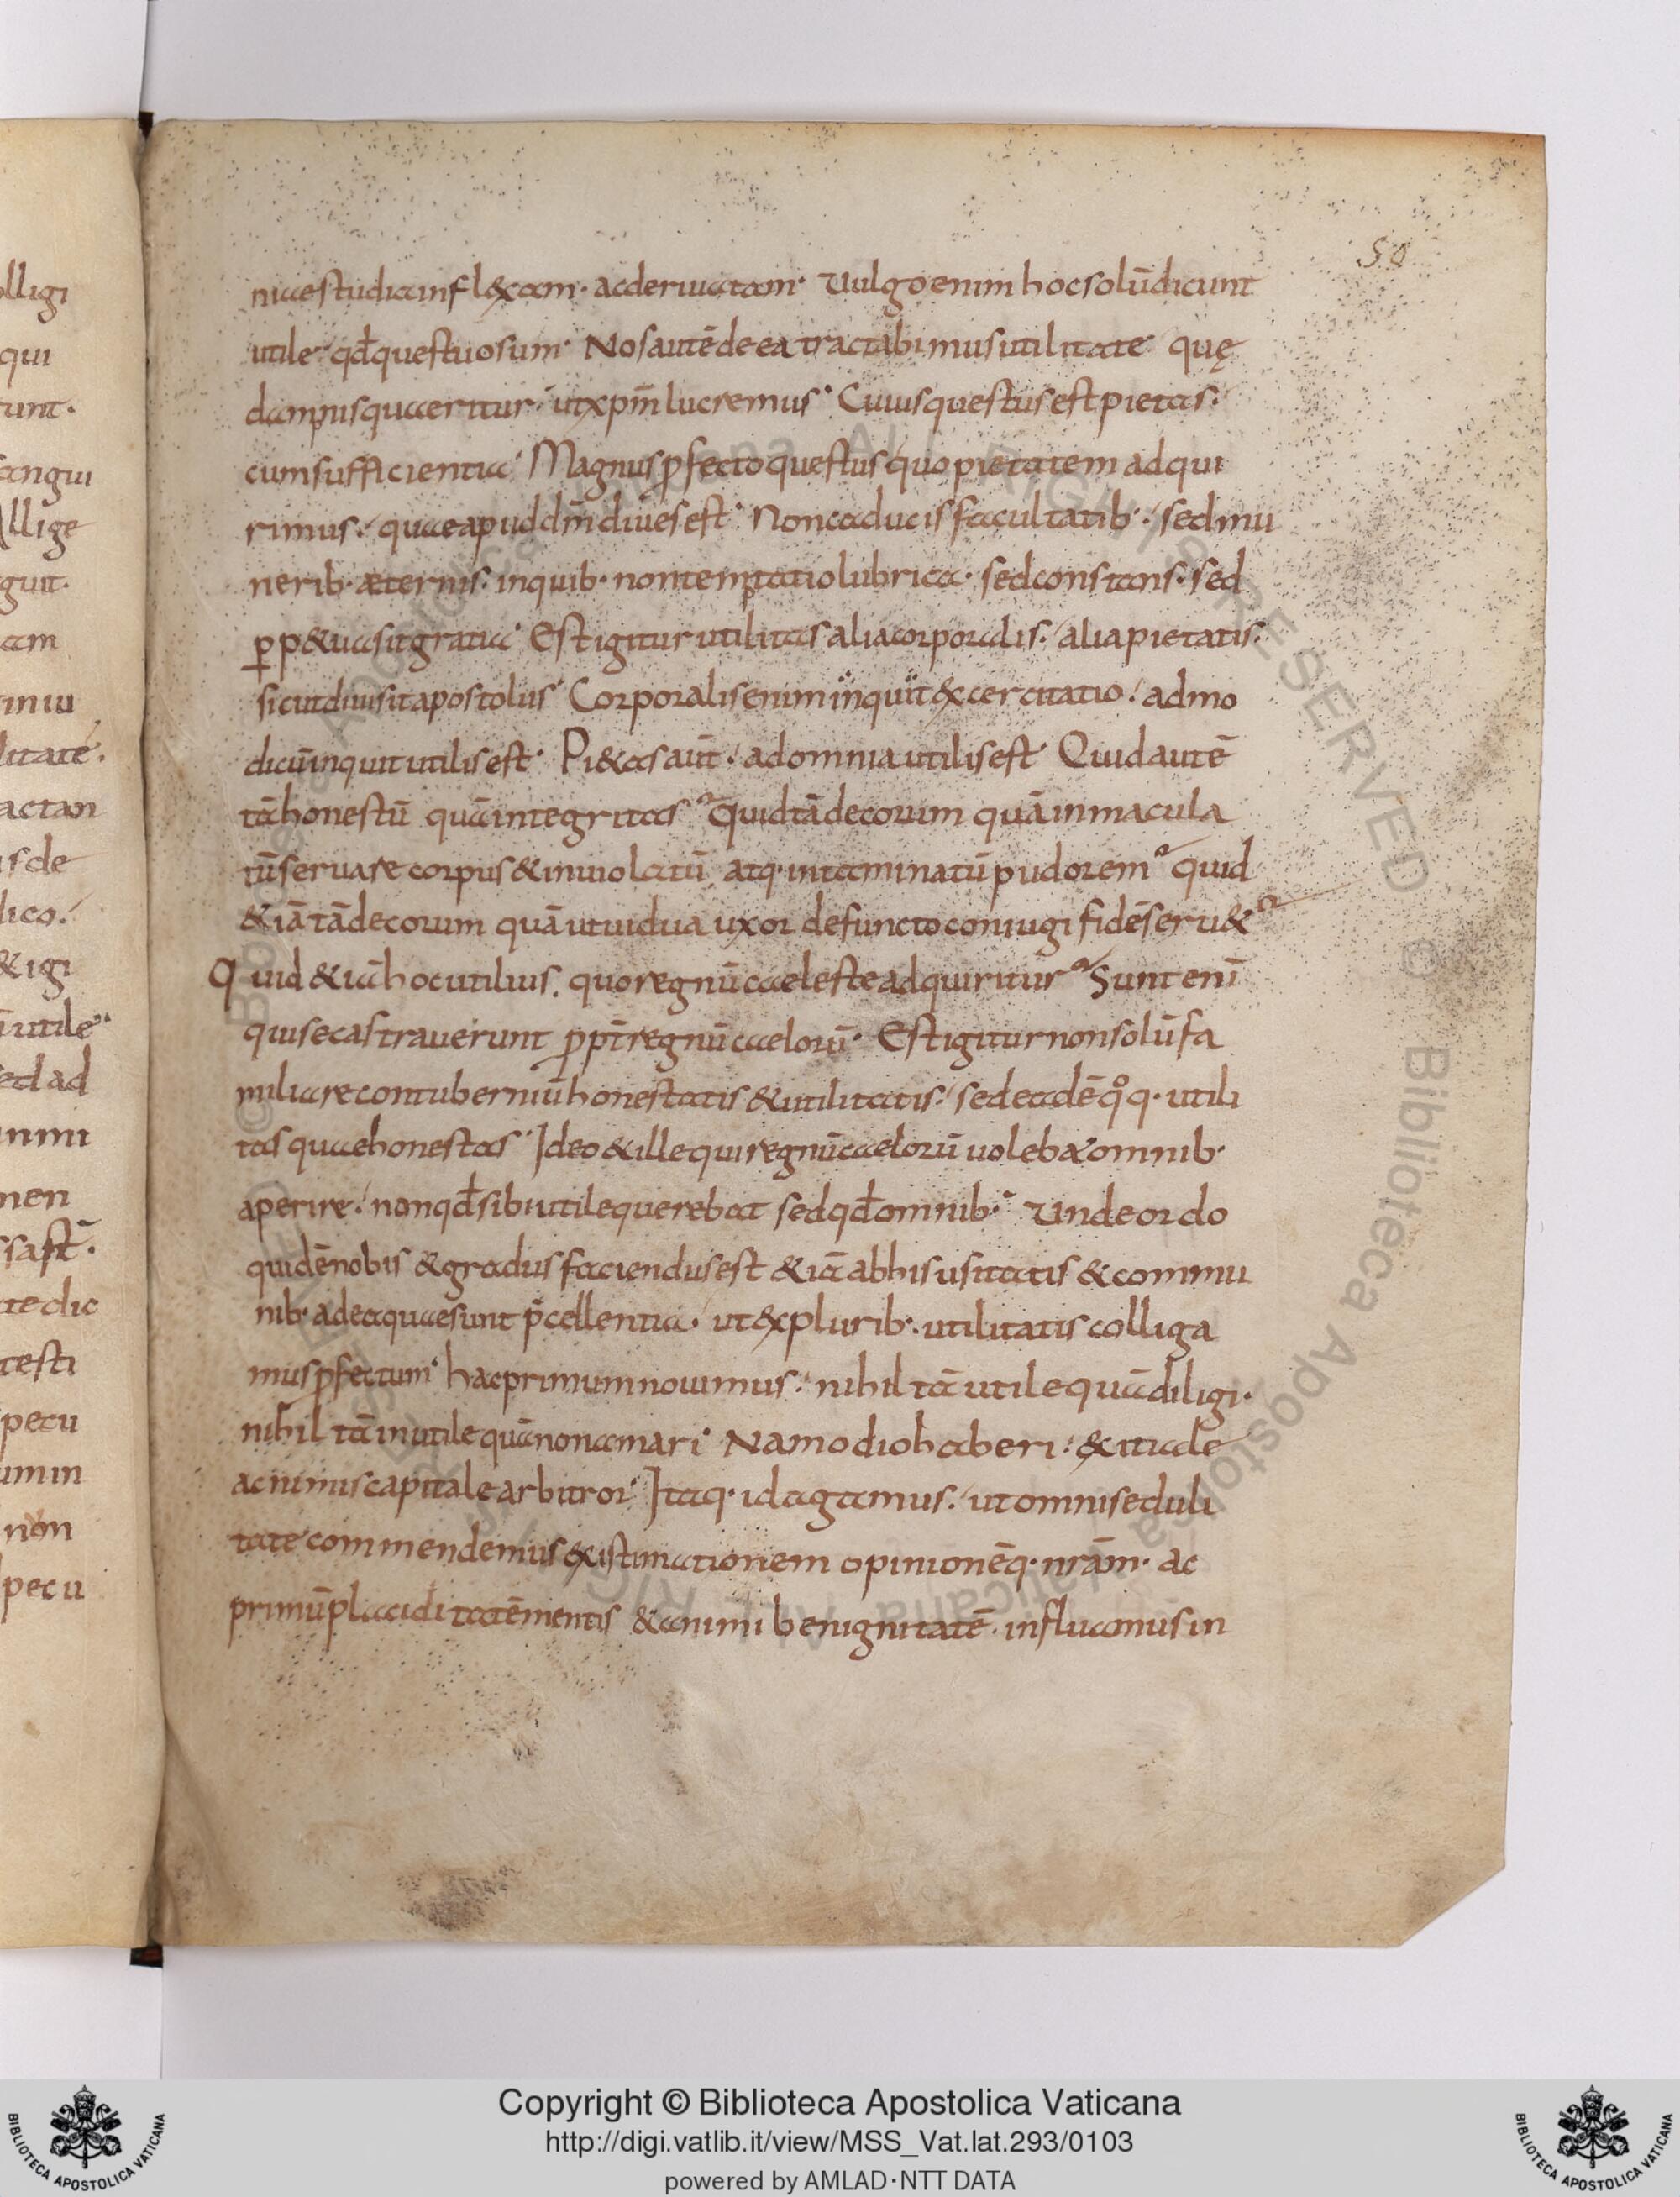 niae studia inflexam· ac deriuatam· Uulgo enim hoc solū dicunt
utile· qđ questuosum· Nos autē de ea tractabimus utilitate quę
dampnis quaeritur· ut xpm̄ lucremus· Cuius questus est pietas·
cum sufficientia· Magnus ꝓfecto questus quo pietatem adqui
rimus· quae apud dm̄ diues est· Non caducis facultatib·/ sed mu
nerib· æternis· in quib· non temptatio lubrica· sed constans· sed
ꝑp&ua sit gratia· Est igitur utilitas alia corporalis·/ alia pietatis·
sicut diuisit apostolus· Corporalis enim inquit exercitatio·/ ad mo
dicū inquit utilis est· Pi&as aūt·/ ad omnia utilis est· Quid autē
tā honestū quā integritas? Quid tā decorum quā inmacula
tū seruare corpus & inuiolatū atq· intaminatū pudorem? Quid
&iā tā decorum quā ut uidua uxor defuncto coniugi fidē seru&?
Quid &iā hoc utilius, quo regnū caeleste adquiritur? Sunt enī
qui se castrauerunt ꝓpt̄ regnū caelorū· Est igitur non solū fa
miliare contuberniū honestatis & utilitatis·/ sed eadē qͦq· utili
tas quae honestas· Ideo & ille qui regnū caelorū uolebat omnib·
aperire·/ non qđ sibi utile querebat sed qđ omnib·· Unde ordo
quidē nobis & gradus faciendus est &iā ab his usitatis & commu
nib· ad ea quae sunt p̄cellentia·/ ut ex plurib·· utilitatis colliga
mus ꝓfectum· hac primum nouimus·/ nihil tā utile quā diligi·
nihil tā inutile quā non amari· Nam odio haberi·/ exitiale
ac nimis capitale arbitror· Itaq· id agamus·/ ut omni seduli
tate commendemus existimationem opinionēq· nrām· ac
primū placiditatē mentis & animi benignitatē· influamus in
50
Copyright © Biblioteca Apostolica Vaticana
http://digi.vatlib.it/view/MSS_Vat.lat.293/0103
powered by AMLAD·NTT DATA
BIBLIOTECA APOSTOLICA VATICANA
BIBLIOTECA APOSTOLICA VATICANA